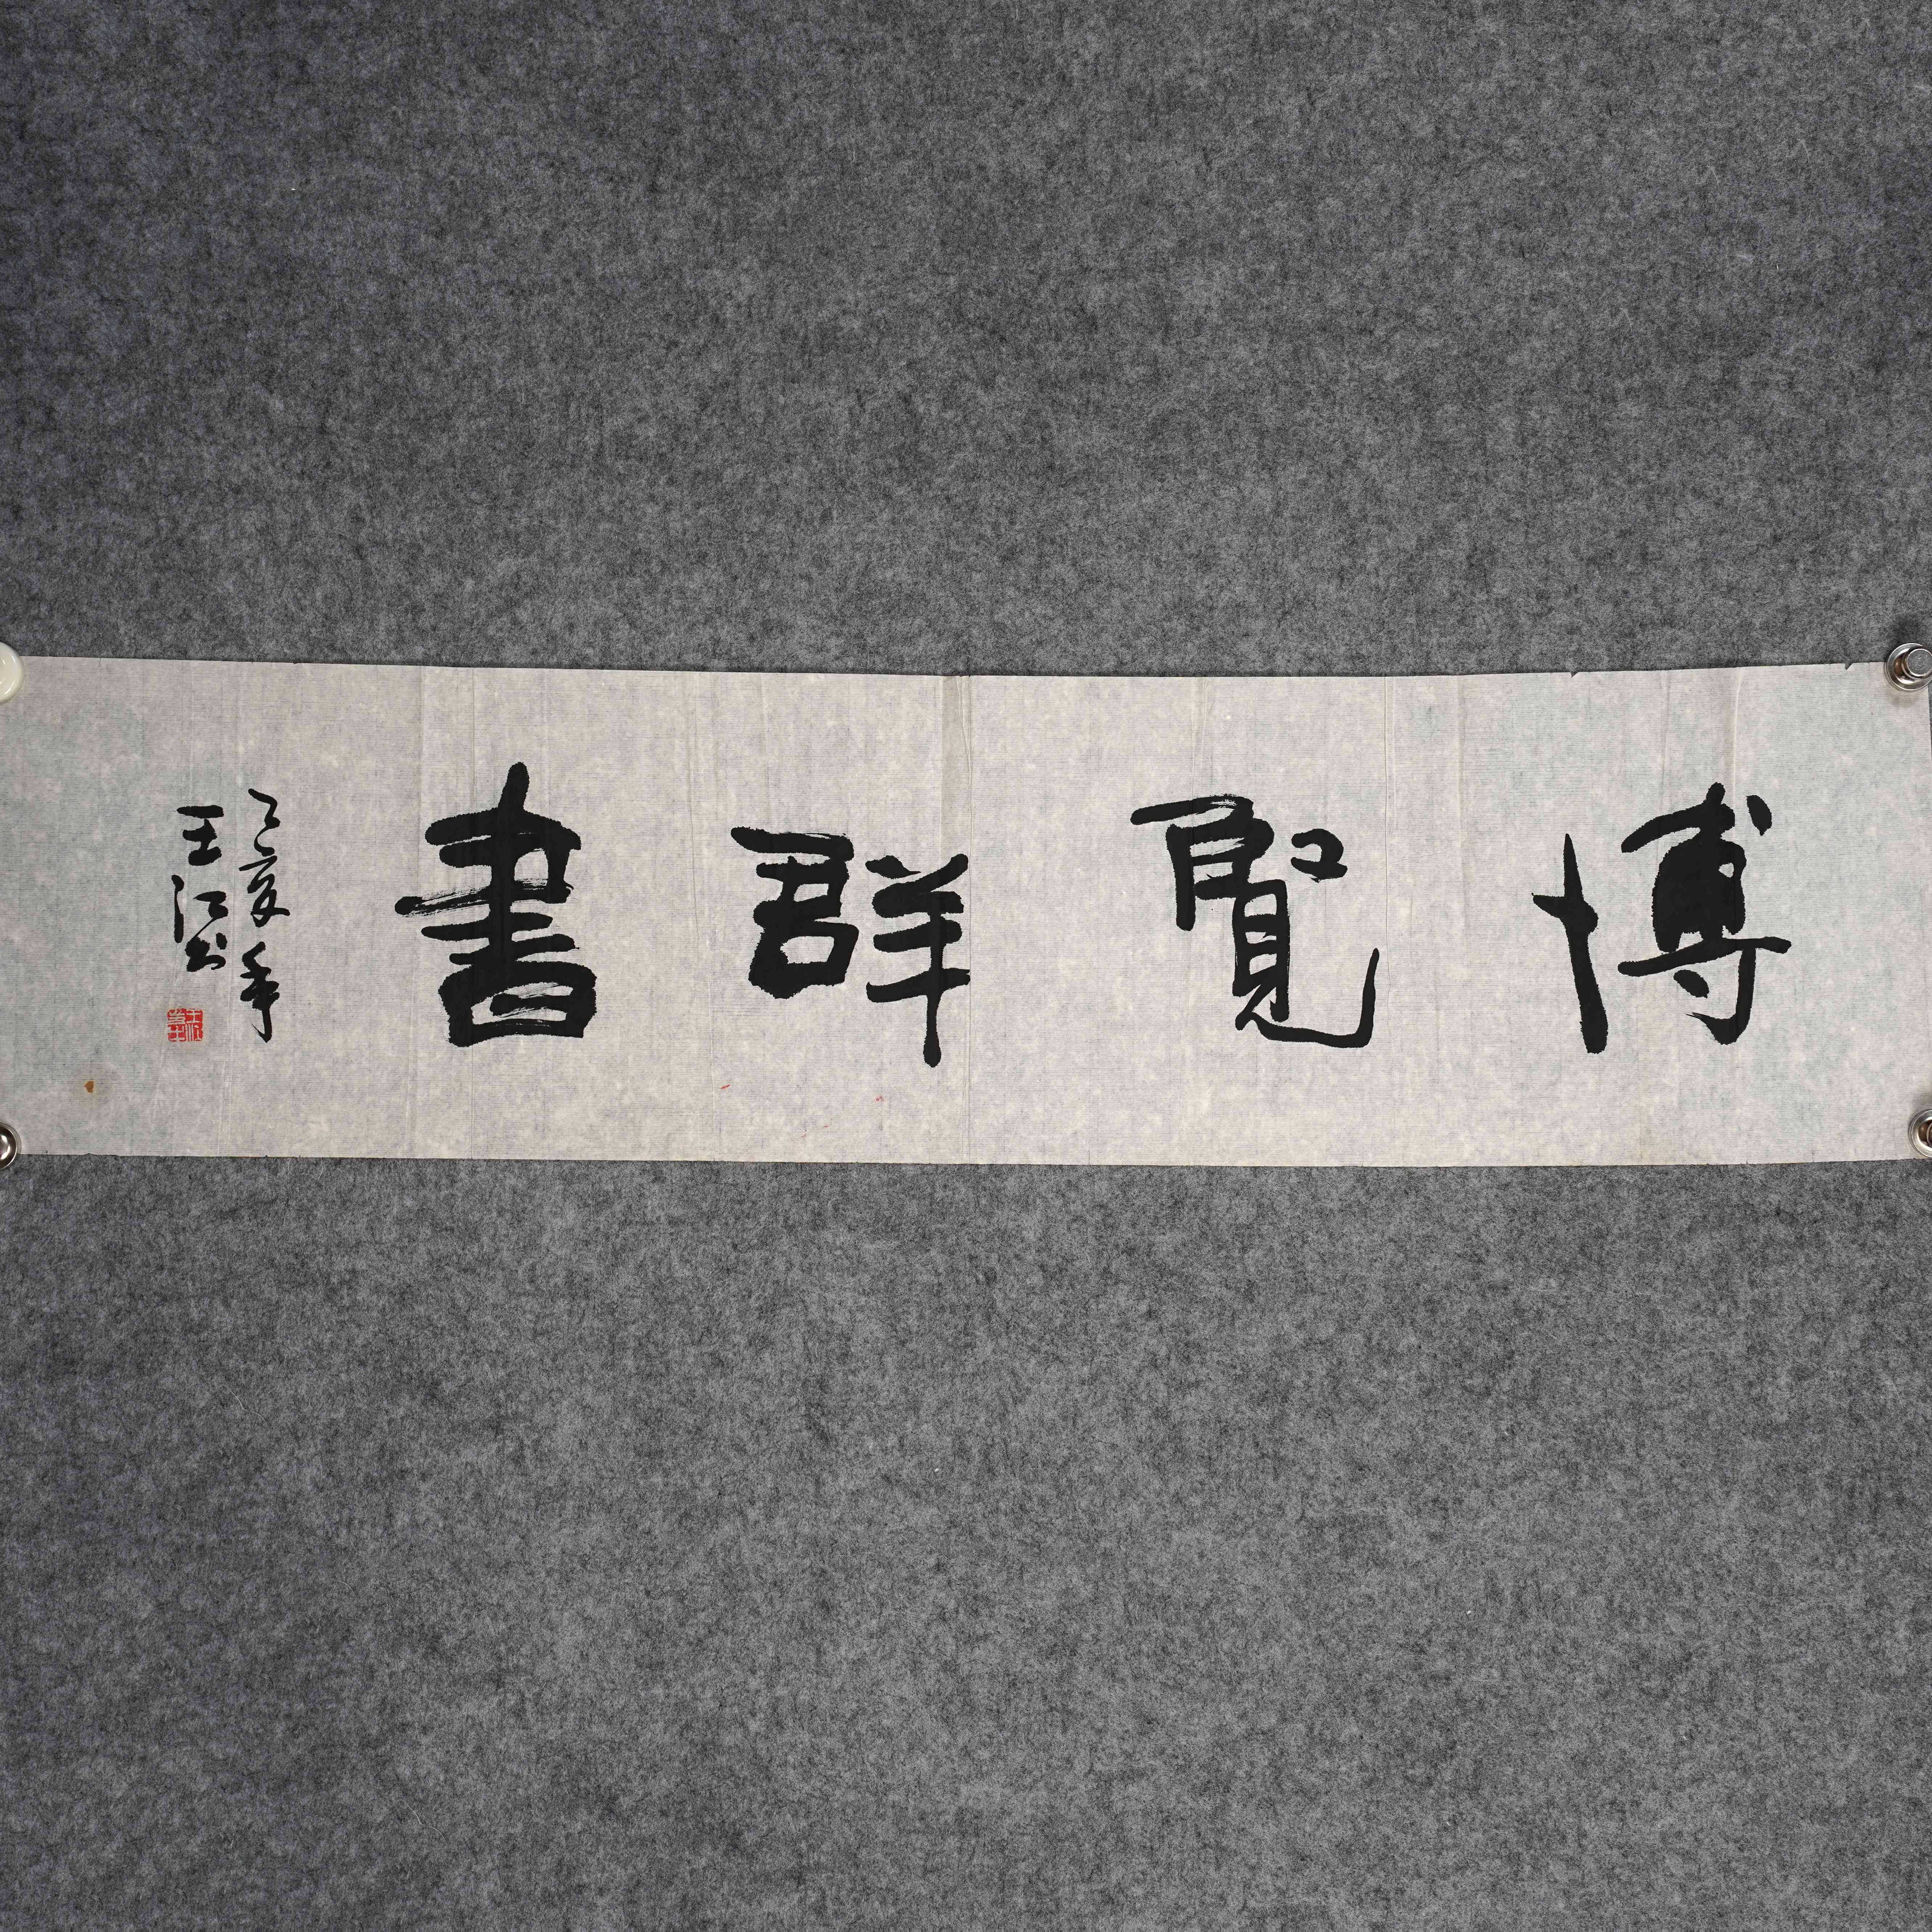 博覽群書
乙亥年
王江书